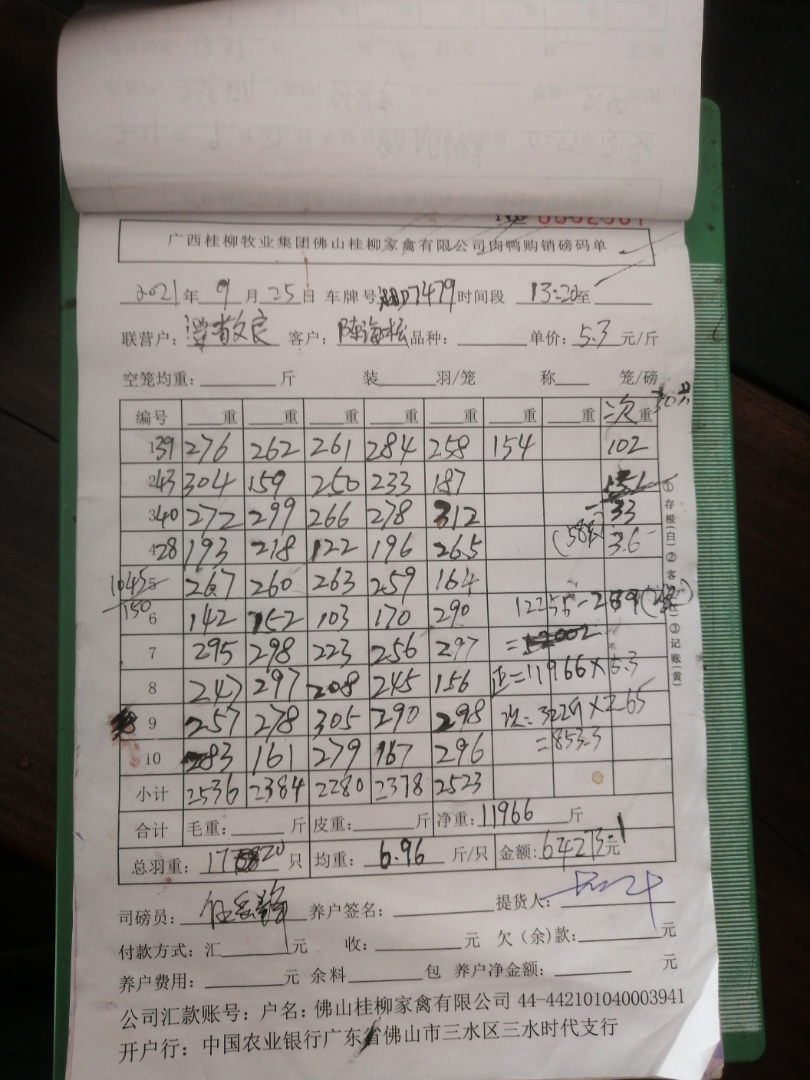 № 0002561
广西桂柳牧业集团佛山桂柳家禽有限公司肉鸭购销磅码单
2021年 9月 25日 车牌号 D7479 时间段 13:20至
联营户: 客户: 陈海松 品种: 单价: 5.3 元/斤
空笼均重: 斤 装 羽/笼 称 笼/磅
编号 重 重 重 重 重 重 重 次重
1 39 276 262 261 284 258 154 102
2 43 304 159 250 233 187
3 40 272 299 266 278 312 33
4 28 193 218 122 196 265 36
5 267 260 263 259 164
1045
150
6 142 152 103 170 290 12255-289
7 295 298 223 256 297 =12002
8 247 297 208 245 156 正=11966×5.3
9 257 278 305 290 298 次=322斤×2.65
10 283 161 279 167 296 =853.3
小计 2536 2384 2280 2378 2523
合计 毛重: 斤 皮重: 斤 净重: 11966 斤
总羽重: 1720 只 均重: 6.96 斤/只 金额: 64273.1元
司磅员: 养户签名: 提货人:
付款方式: 汇 元 收: 元 欠(余)款: 元
养户费用: 元 余料 包 养户净金额: 元
公司汇款账号: 户名: 佛山桂柳家禽有限公司 44-442101040003941
开户行: 中国农业银行广东省佛山市三水区三水时代支行
①存根(白)②客 (红)③记账(黄)